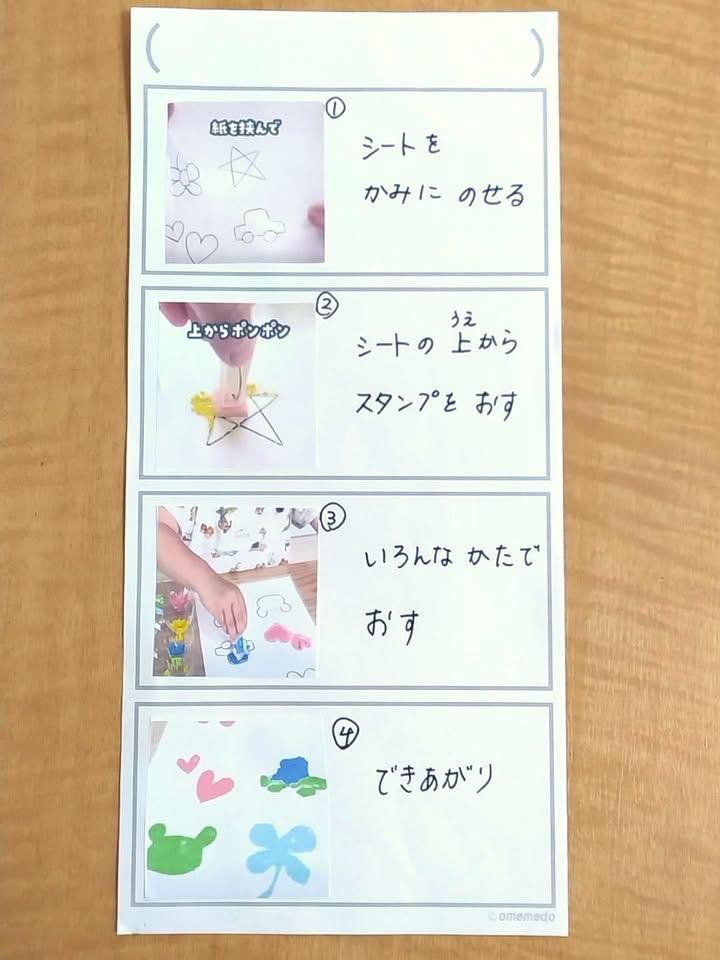 （ ）
①
紙を挟んで
シートを
かみに のせる
②
上からポンポン
うえ
シートの 上から
スタンプを おす
③
いろんな かたで
おす
④
できあがり
© amemedo